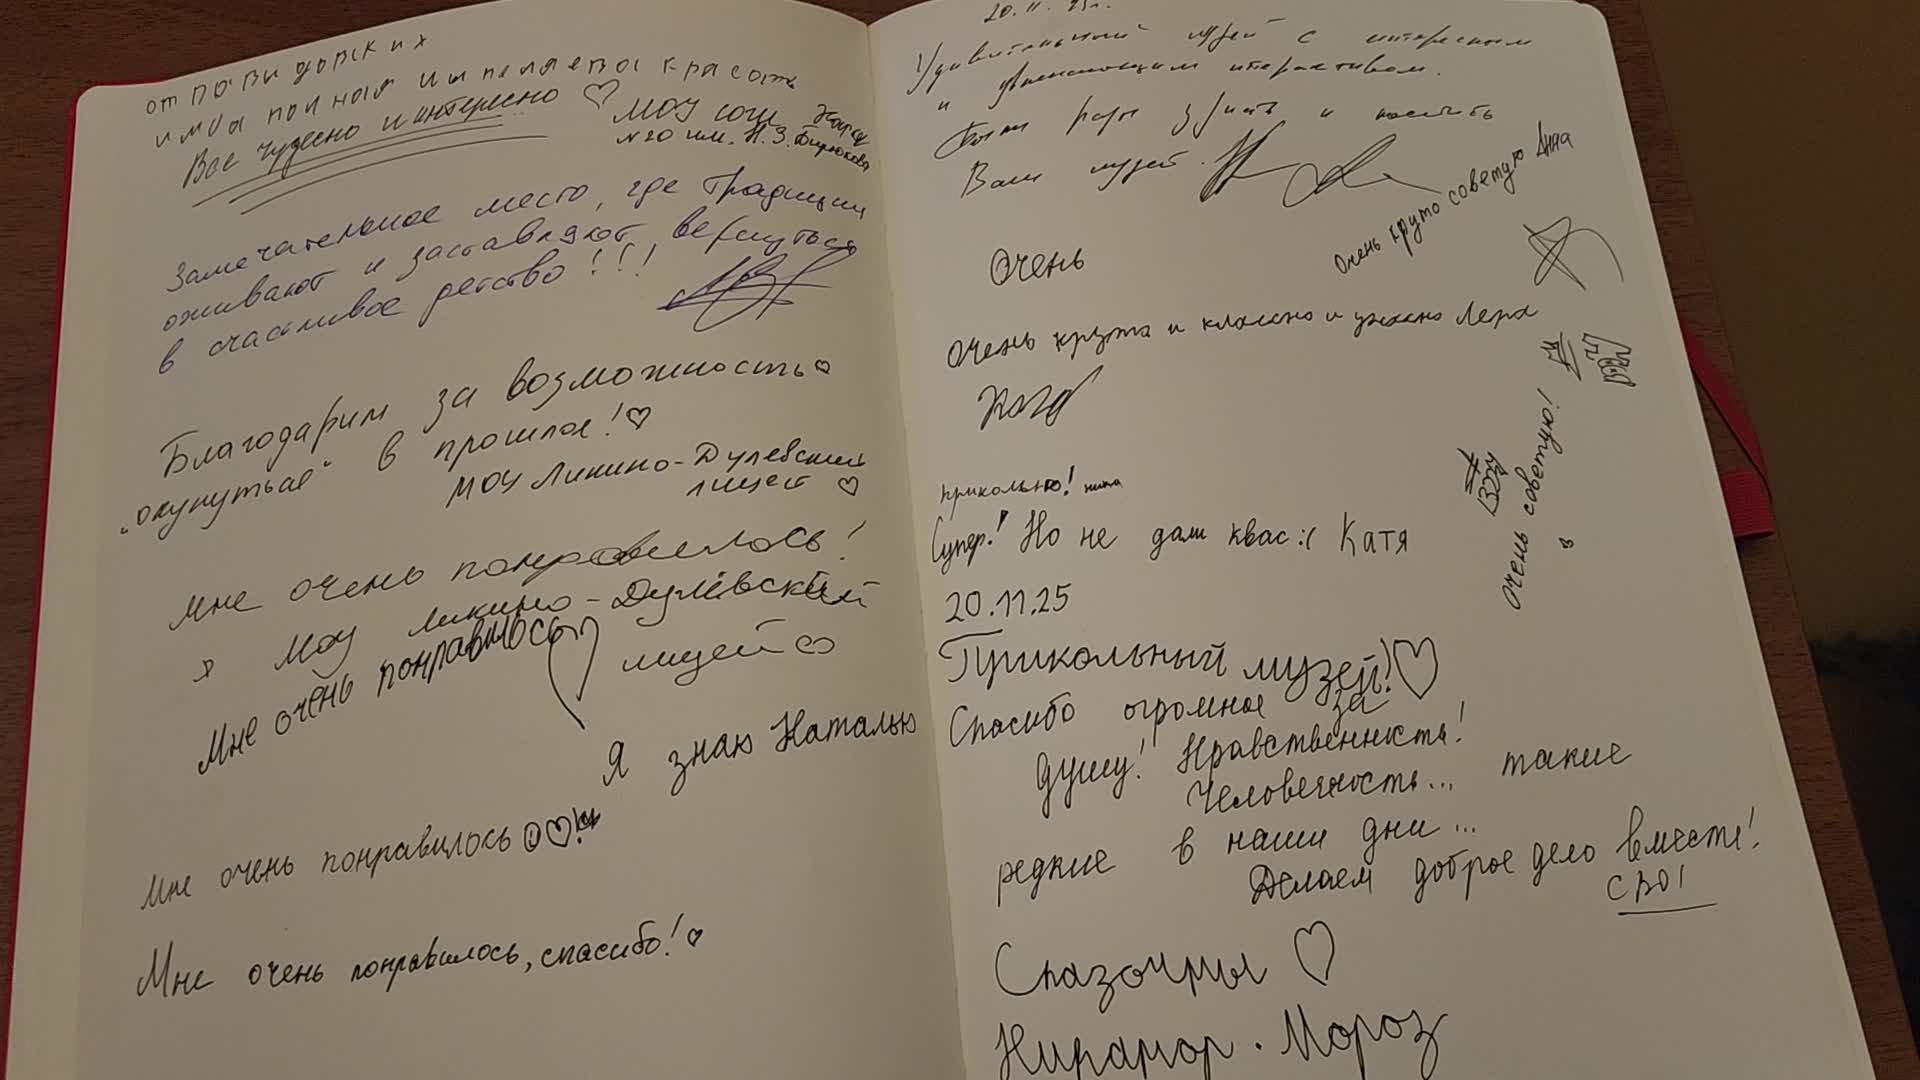 имба полная
Все чудесно и интересно
МОУ СОШ
№20 им. Н.З. Бирюкова
Замечательное место, где традиции
оживают и заставляют вернуться
в счастливое детство!!!
Благодарим за возможность
"окунуться" в прошлое!
МОУ Ликино-Дулевский
лицей
Мне очень понравилось!
я МОУ Ликино-Дулёвский
лицей
Мне очень понравилось
Я знаю Наталью
Мне очень понравилось
Мне очень понравилось, спасибо!
20.11.25г.
Удивительный музей с интересным
и увлекающим интерактивом.
Были рады узнать и посетить
Ваш музей.
Очень круто советую Анна
Очень
Очень крута и классно и ужасно Лера
прикольно!
Супер! Но не дали квас :( Катя
Очень советую!
20.11.25
Прикольный музей!
Спасибо огромное за
душу! Нравственность!
Человечность... такие
редкие в наши дни...
Делаем доброе дело вместе!
СВО!
Мороз